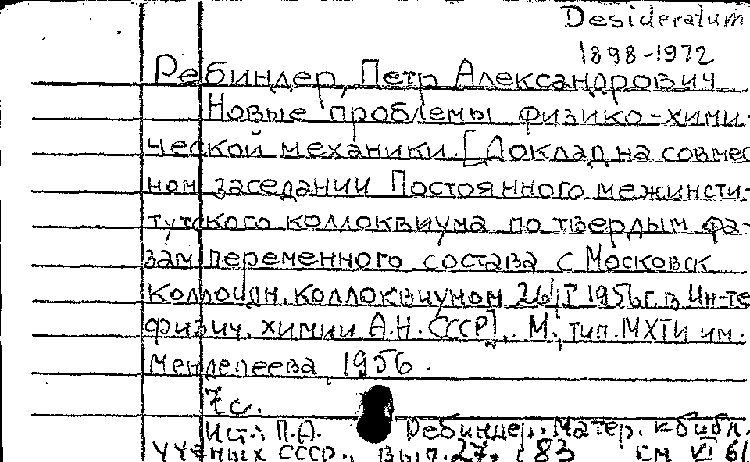 Desideratum
1898-1972
Ребиндер, Петр Александрович
Новые проблемы физико-хими-
ческой механики. [Доклад на совмес
ном заседании Постоянного межинсти-
тутского коллоквиума по твердым фа-
зам переменного состава с Московск
Коллоидн. коллоквиумом 26/I 1956г. в Ин-те
физич. химии А.Н. СССР]. М., тип. МХТИ им.
Менделеева, 1956.
7с.
Ист.: П.А. Ребиндер. Матер. к библ.
ученых СССР., вып. 27, с 83 см VI 61